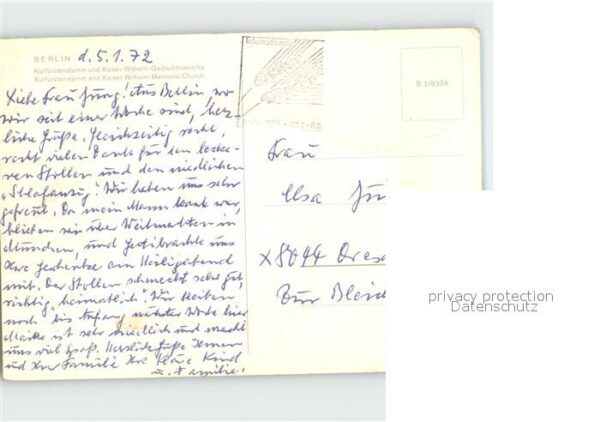 BERLIN d. 5.1.72
Kurfürstendamm und Kaiser-Wilhelm-Gedächtniskirche
Kurfürstendamm and Kaiser Wilhelm Memorial Church
Liebe Frau Jung! Aus Berlin, wo
wir seit einer Woche sind, herz-
liche Grüße. Gleichzeitig recht,
recht vielen Dank für den lecke-
ren Stollen und den niedlichen
"Schlafanzug". Wir haben uns sehr
gefreut. Da mein Mann krank war,
blieben wir über Weihnachten in
München, und brachte uns
Ihre Geschenke am Heiligabend
mit. Der Stollen schmeckt sehr gut,
richtig "heimatlich". Wir bleiben
noch bis Anfang nächster Woche hier
ist sehr niedlich und macht
uns viel Spaß. Herzliche Grüße Ihnen
und Ihrer Familie Ihre Kind
u. Familie.
Internationale
B 1/8334
Frau
Elsa Ju
X 8044 Dres
Zur Bleic
privacy protection
Datenschutz